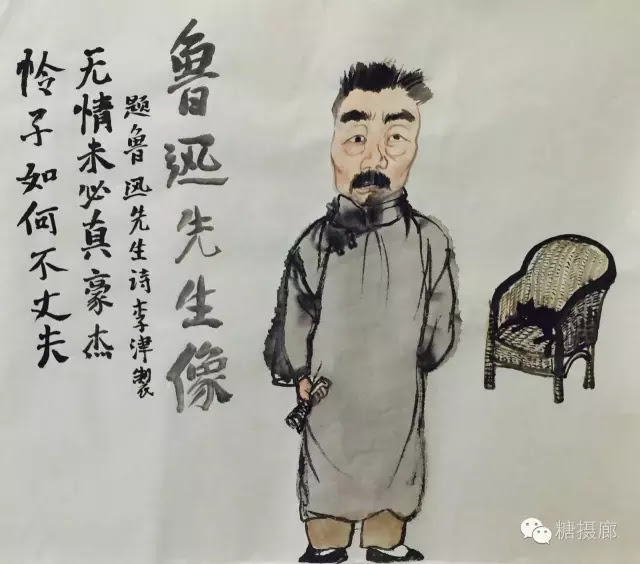 鲁迅先生像
题鲁迅先生诗李津製
无情未必真豪杰
怜子如何不丈夫
糖摄廊